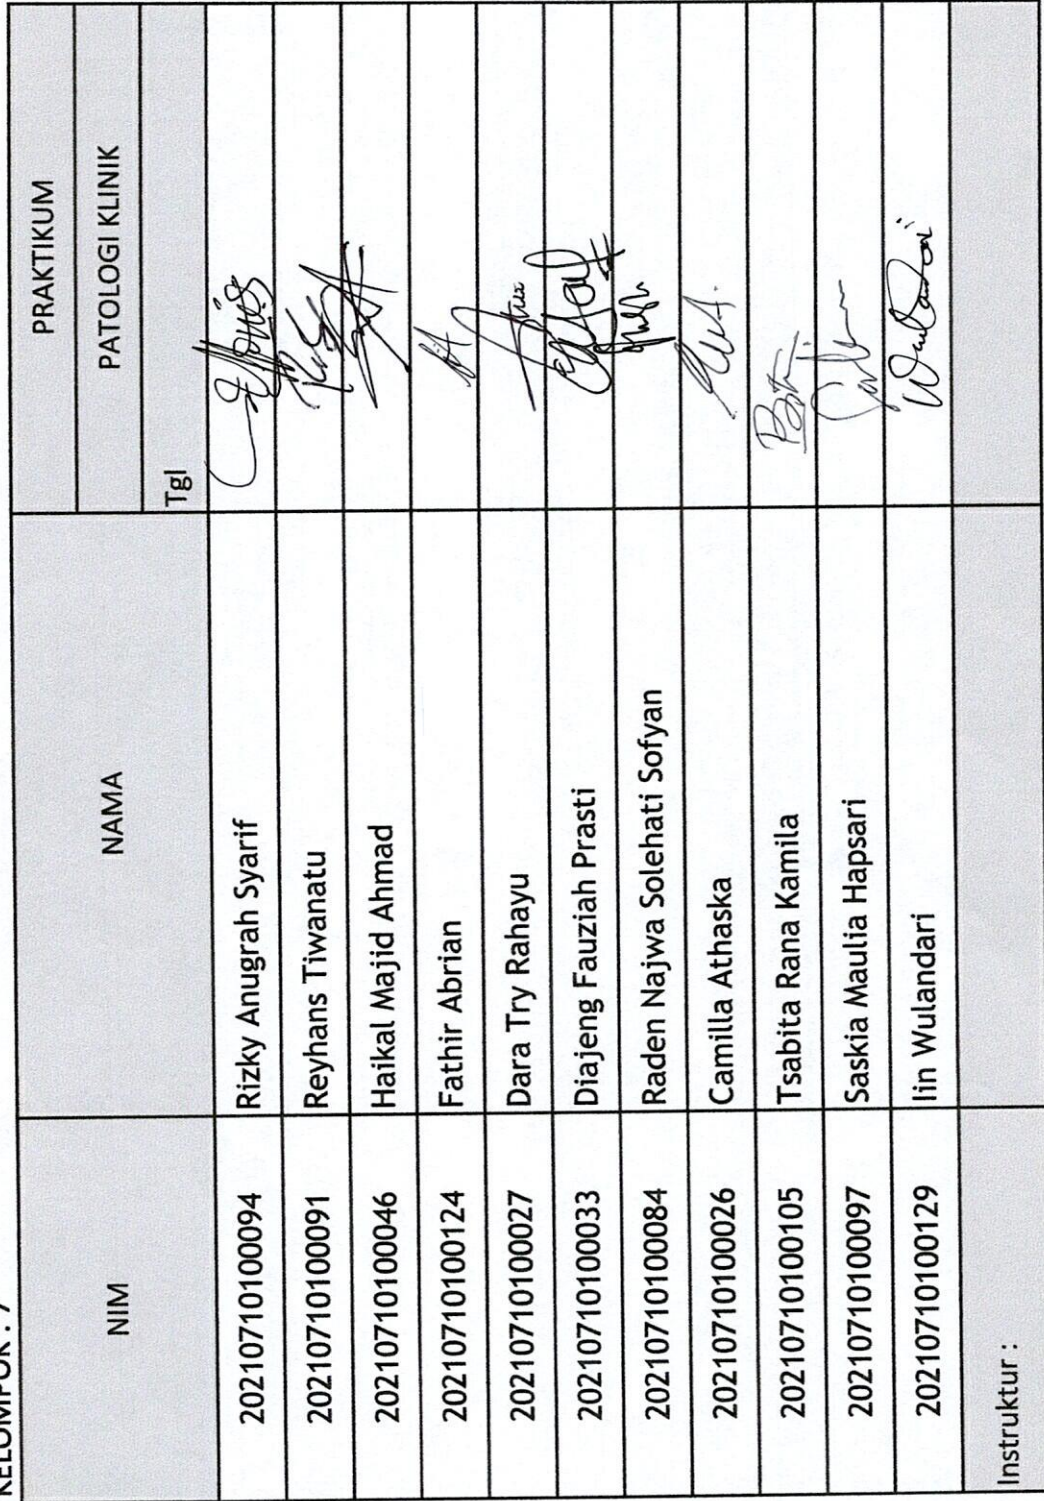 KELOMPOK : 7
NIM NAMA PRAKTIKUM
PATOLOGI KLINIK
Tgl
20210710100094 Rizky Anugrah Syarif
20210710100091 Reyhans Tiwanatu
20210710100046 Haikal Majid Ahmad
20210710100124 Fathir Abrian
20210710100027 Dara Try Rahayu
20210710100033 Diajeng Fauziah Prasti
20210710100084 Raden Najwa Solehati Sofyan
20210710100026 Camilla Athaska
20210710100105 Tsabita Rana Kamila
20210710100097 Saskia Maulia Hapsari
20210710100129 Iin Wulandari
Instruktur :